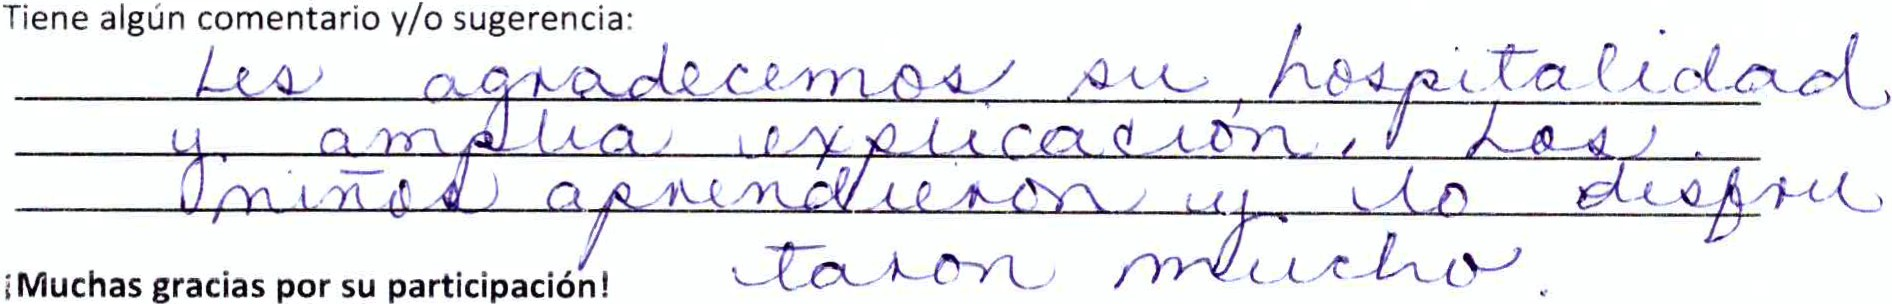 Tiene algún comentario y/o sugerencia:
Les agradecemos su hospitalidad
y amplia explicación. Los
niños aprendieron y lo disfru
taron mucho.
¡Muchas gracias por su participación!